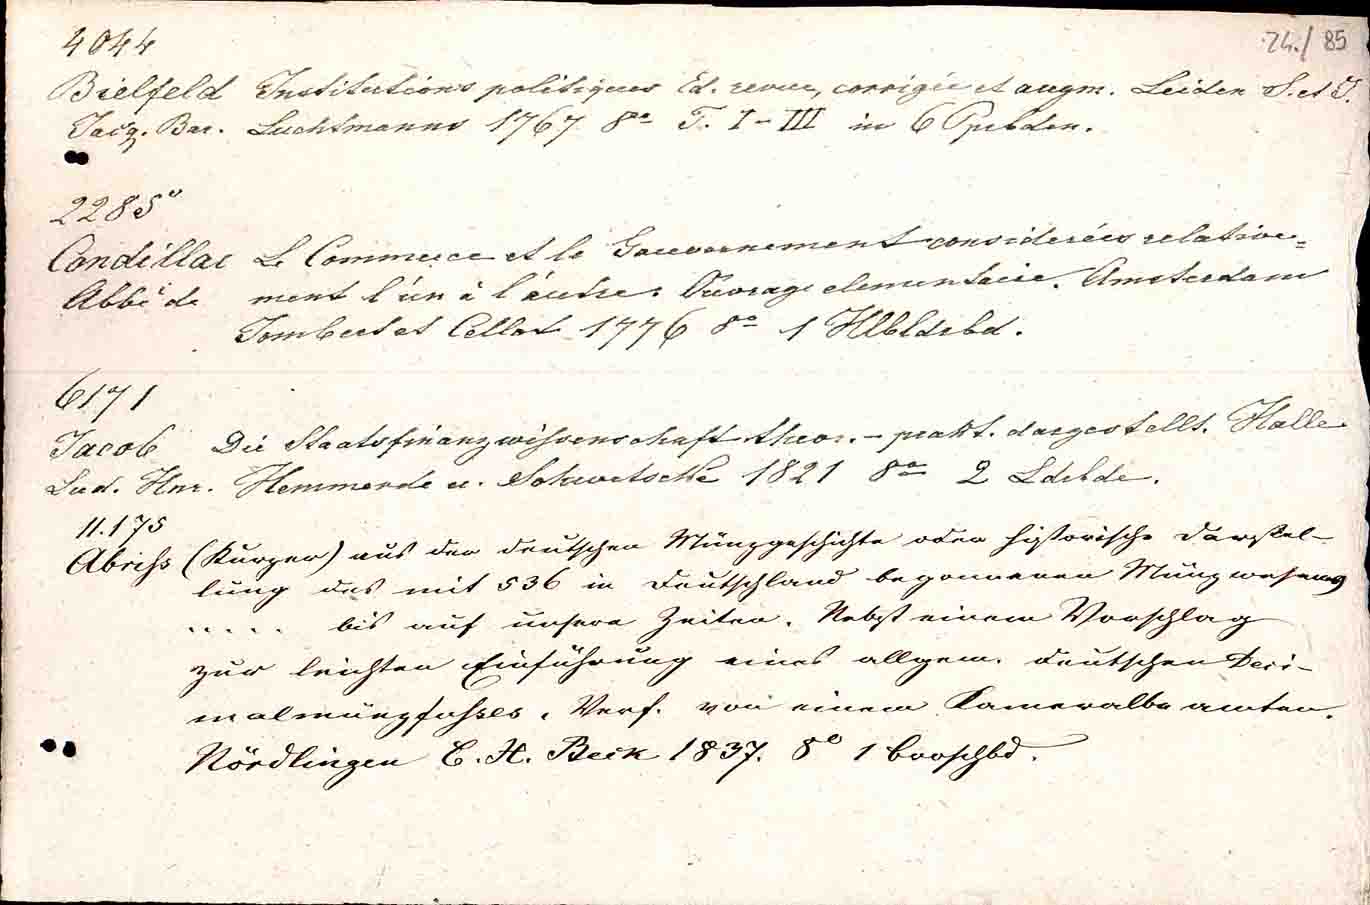 4044
74./85
Bielfeld Institutions politiques Ed. revue, corrigée et augm. Leiden S. et J.
Jacq. Bar. Luchtmanns 1767 8vo T. I-III in 6 Ppbden.
2285°
Condillac Le Commerce et le Gouvernement considerées relative=
Abbé de ment l'un à l'autre. Ouvrage elementaire. Amsterdam
Jombert et Cellot 1776 8o 1 Hlbldrbd.
6171
Jacob Die Staatsfinanzwissenschaft theor.-prakt. dargestellt. Halle
Lud. Hnr. Hemmerde u. Schwetschke 1821 8o 2 Ldrbde.
11.175
Abriss (Kurzer) aus der deutschen Münzgeschichte oder historische Darstel-
lung des mit 536 in Deutschland begonnenen Münzwesens
..... bis auf unsere Zeiten. Nebst einem Vorschlag
zur leichten Einführung eines allgem. deutschen Deci-
malmünzfusses. Verf. von einem Kameralbeamten.
Nördlingen C. H. Beck 1837. 8o 1 broschbd.